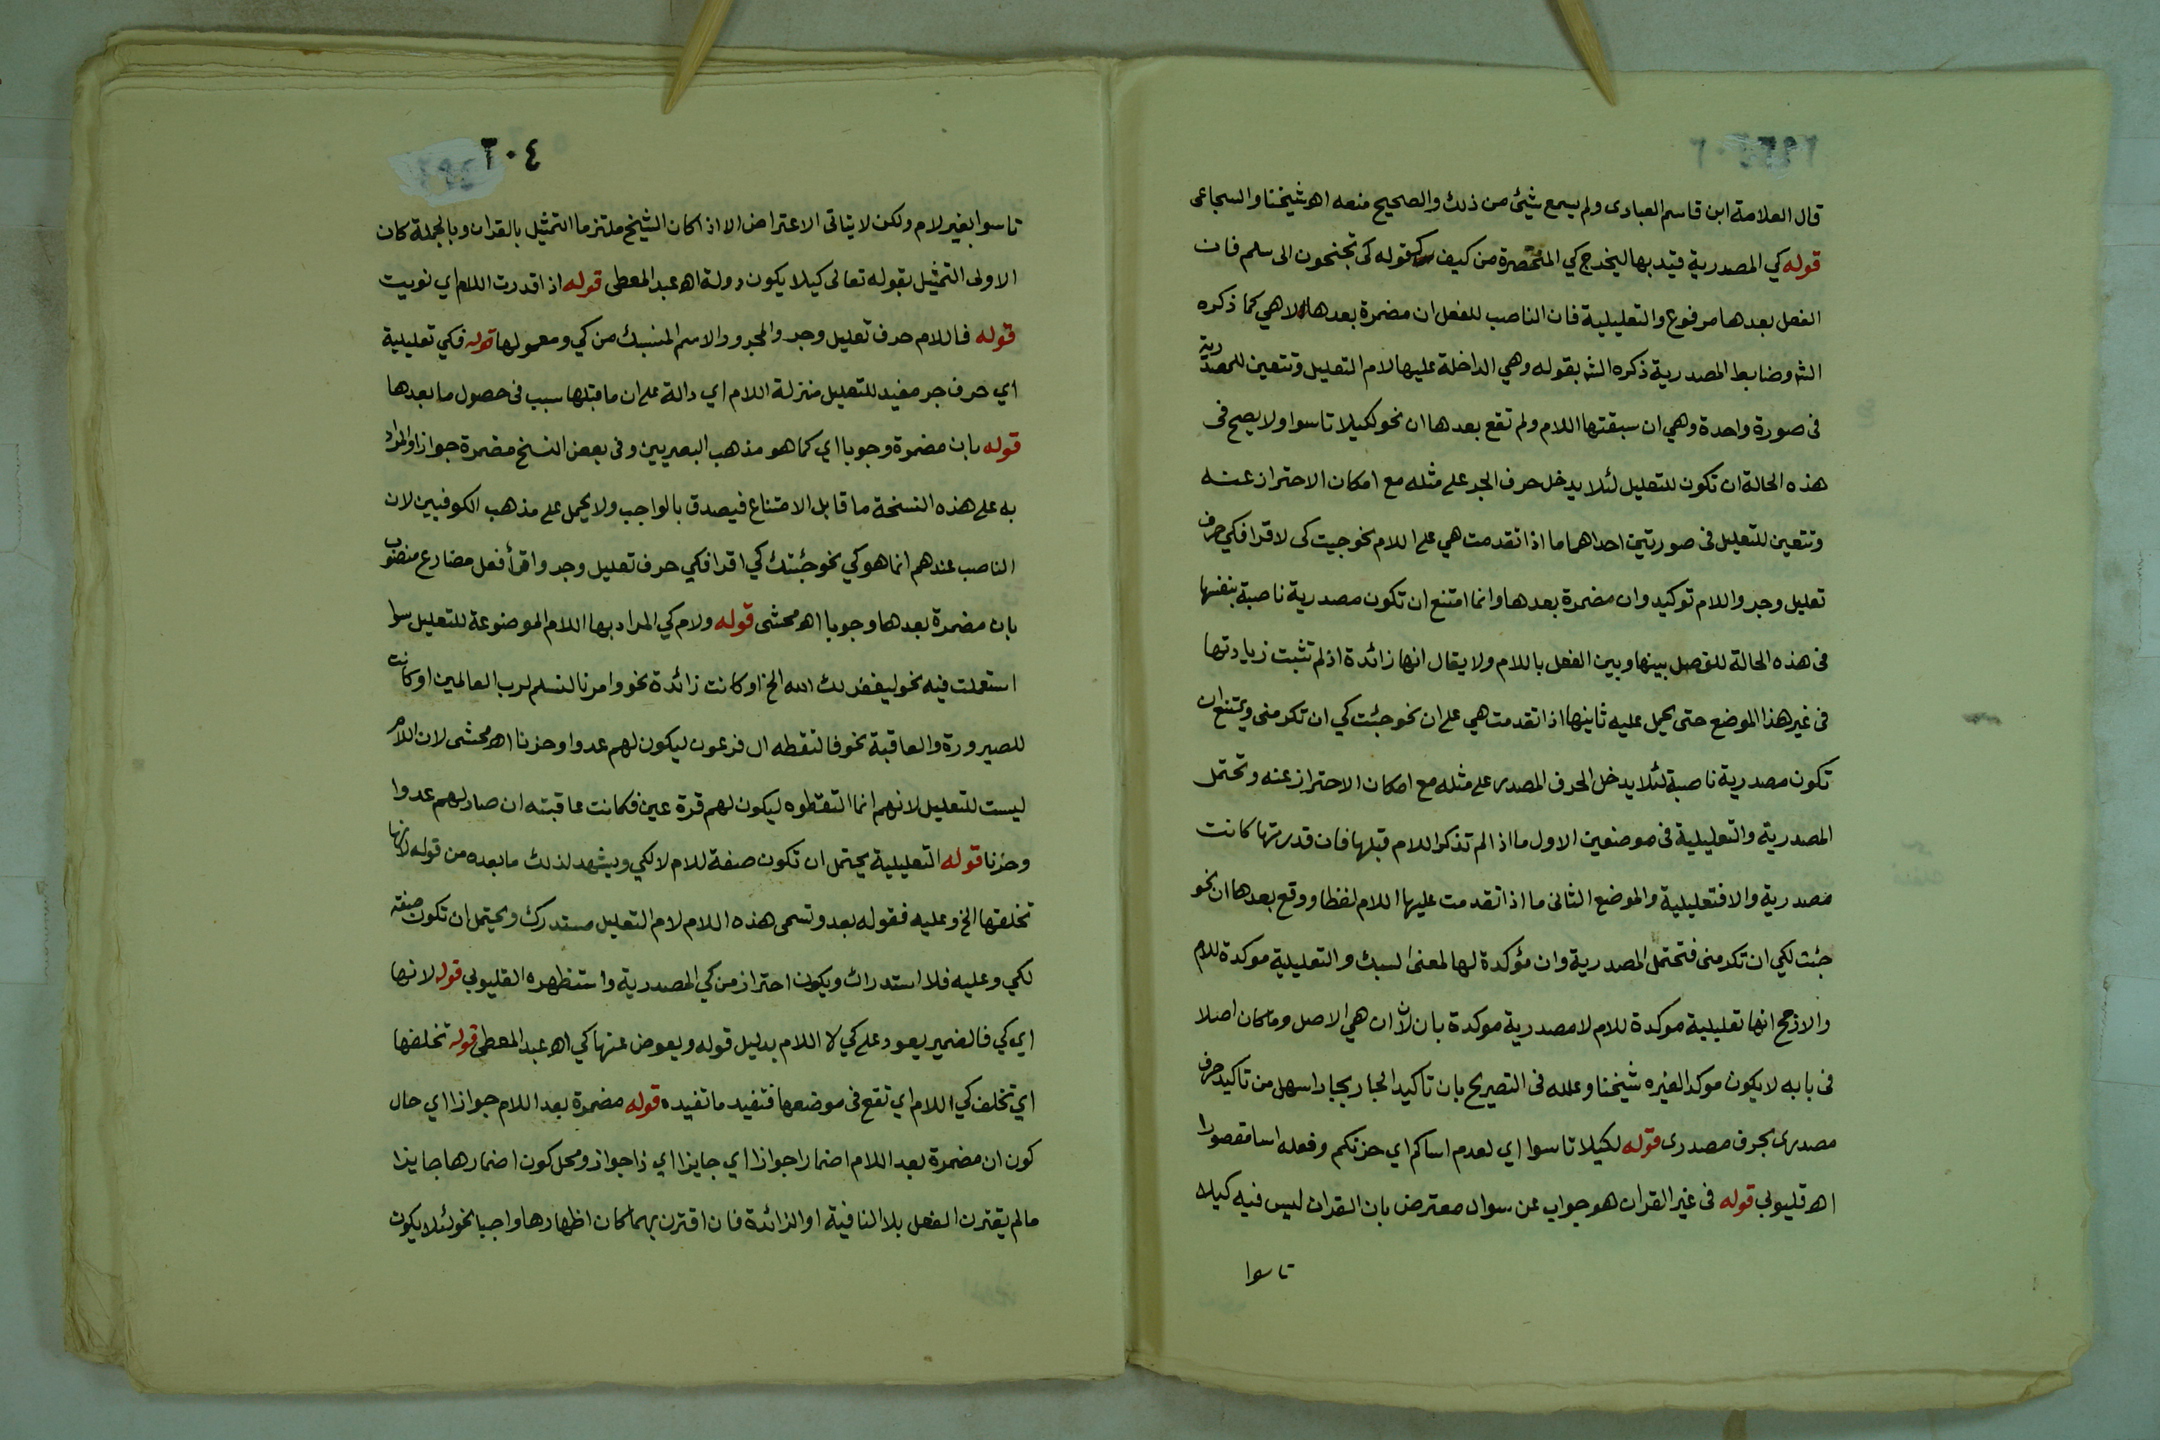 قال العلامة ابن قاسم العبادى ولم يسمع شيئ من ذلك والصحيح منعه اهـ شيخنا والسجاعى
قوله كي المصدرية قيد بها ليخرج كي المختصرة من كيف كقوله كى تجنحون الى سلم فان
الفعل بعدها مرفوع والتعليلية فان الناصب للفعل ان مضمرة بعدها لا هي كما ذكره
الشـ وضابط المصدرية ذكره الشـ بقوله وهي الداخلة عليها لام التعليل وتتعين للمصدرية
فى صورة واحدة وهي ان سبقتها اللام ولم تقع بعدها ان نحو لكيلا تاسوا ولا يصح فى
هذه الحالة ان تكون للتعليل لئلا يدخل حرف الجر على مثله مع امكان الاحتراز عنه
وتتعين للتعليل فى صورتين احداهما ما اذا تقدمت هي على اللام نحو جيت كى لاقرا فكي حرف
تعليل وجر واللام توكيد وان مضمرة بعدها وانما امتنع ان تكون مصدرية ناصبة بنفسها
فى هذه الحالة للفصل بينها وبين الفعل باللام ولا يقال انها زائدة اذ لم تثبت زيادتها
فى غير هذا الموضع حتى يحمل عليه ثانيها اذا تقدمت هي على ان نحو جئت كي ان تكرمنى ويمتنع ان
تكون مصدرية ناصبة لئلا يدخل الحرف المصدرى على مثله مع امكان الاحتراز عنه وتحتمل
المصدرية والتعليلية فى موضعين الاول ما اذا لم تذكر اللام قبلها فان قدرتها كانت
مصدرية والا فتعليلية والموضع الثانى ما اذا تقدمت عليها اللام لفظا ووقع بعدها ان نحو
جئت لكي ان تكرمنى فتحتمل المصدرية وان مؤكدة لها لمعنى السبك والتعليلية موكدة للام
والارجح انها تعليلية موكدة للام لا مصدرية موكدة بان لان ان هي الاصل وما كان اصلا
فى بابه لا يكون موكدا لغيره شيخنا وعلله فى التصريح بان تاكيد الجار بجار اسهل من تاكيد حرف
مصدرى بحرف مصدرى قوله لكيلا تاسوا اي لعدم اساكم اي حزنكم وفعله اسا مقصورا
اهـ قليوبي قوله فى غير القران هو جواب عن سوال معترض بان القران ليس فيه كيلا
تاسوا
٢٠٤
تاسوا بغير لام ولكن لا يتاتى الاعتراض الا اذا كان الشيخ ملتزما التمثيل بالقران وبالجملة كان
الاولى التمثيل بقوله تعالى كيلا يكون دولة اهـ عبد المعطى قوله اذا قدرت اللام اي نويت
قوله فاللام حرف تعليل وجر والمجرور الاسم المنسبك من كي ومعمولها قوله فكي تعليلية
اي حرف جر مفيد للتعليل منزلة اللام اي دالة على ان ما قبلها سبب فى حصول ما بعدها
قوله بان مضمرة وجوبا اي كما هو مذهب البصريين وفى بعض النسخ مضمرة جوازا والمراد
به على هذه النسخة ما قابل الامتناع فيصدق بالواجب ولا يحمل على مذهب الكوفيين لان
الناصب عندهم انما هو كي نحو جئتك كي اقرا فكي حرف تعليل وجر واقرأ فعل مضارع منصوب
بان مضمرة بعدها وجوبا اهـ محشى قوله ولام كي المراد بها اللام الموضوعة للتعليل سوا
استعملت فيه نحو ليغفر لك الله الخ او كانت زائدة نحو وامرنا لنسلم لرب العالمين او كانت
للصيرورة والعاقبة نحو فالتقطه ال فرعون ليكون لهم عدوا وحزنا اهـ محشى لان اللام
ليست للتعليل لانهم انما التقطوه ليكون لهم قرة عين فكانت عاقبته ان صار لهم عدوا
وحزنا قوله التعليلية يحتمل ان تكون صفة للام لا لكي ويشهد لذلك ما بعده من قوله لانها
تخلفها الخ وعليه فقوله بعد وتسمى هذه اللام لام التعليل مستدرك ويحتمل ان تكون صفة
لكي وعليه فلا استدراك ويكون احتراز من كي المصدرية واستظهره القليوبي قوله لانها
اي كي فالضمير يعود على كي لا اللام بدليل قوله ويعوض عنها كي اهـ عبد المعطى قوله تخلفها
اي تخلف كي اللام اي تقع فى موضعها فتفيد ما تفيده قوله مضمرة بعد اللام جوازا اي حال
كون ان مضمرة بعد اللام اضمارا جوازا اي جايزا اي ذا جواز ومحل كون اضمارها جايزا
ما لم يقترن الفعل بلا النافية او الزائدة فان اقترن بهما كان اظهارها واجبا نحو لئلا يكون